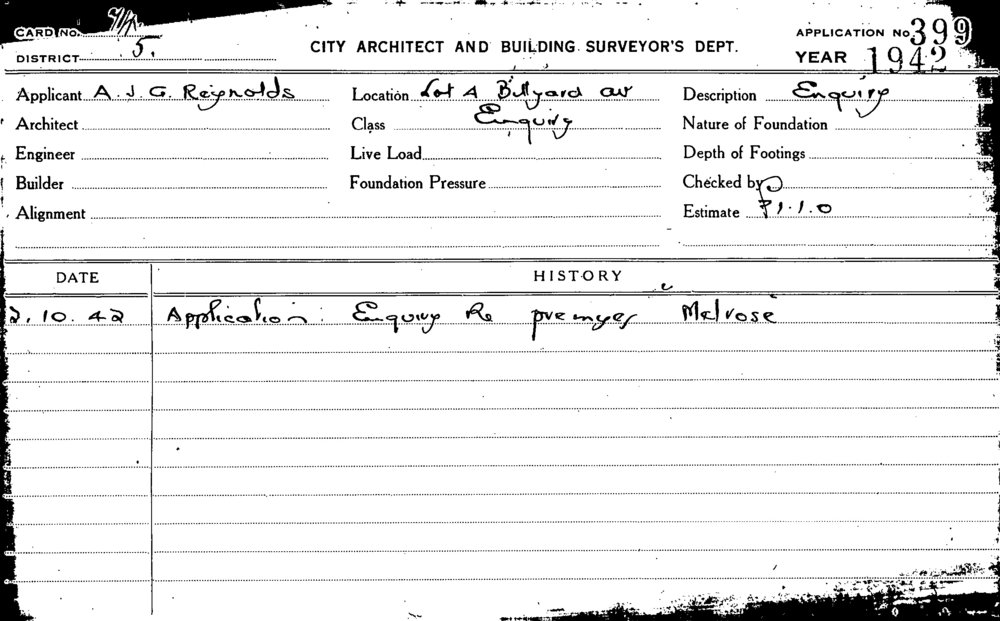 CARD NO. APPLICATION No 399
DISTRICT 5. CITY ARCHITECT AND BUILDING SURVEYOR'S DEPT. YEAR 1942
Applicant A. J. G. Reynolds Location Lot A Billyard av Description Enquiry
Architect Class Enquiry Nature of Foundation
Engineer Live Load Depth of Footings
Builder Foundation Pressure Checked by
Alignment Estimate 1.1.0
DATE HISTORY
2.10.42 Application: Enquiry Re premyes Melrose